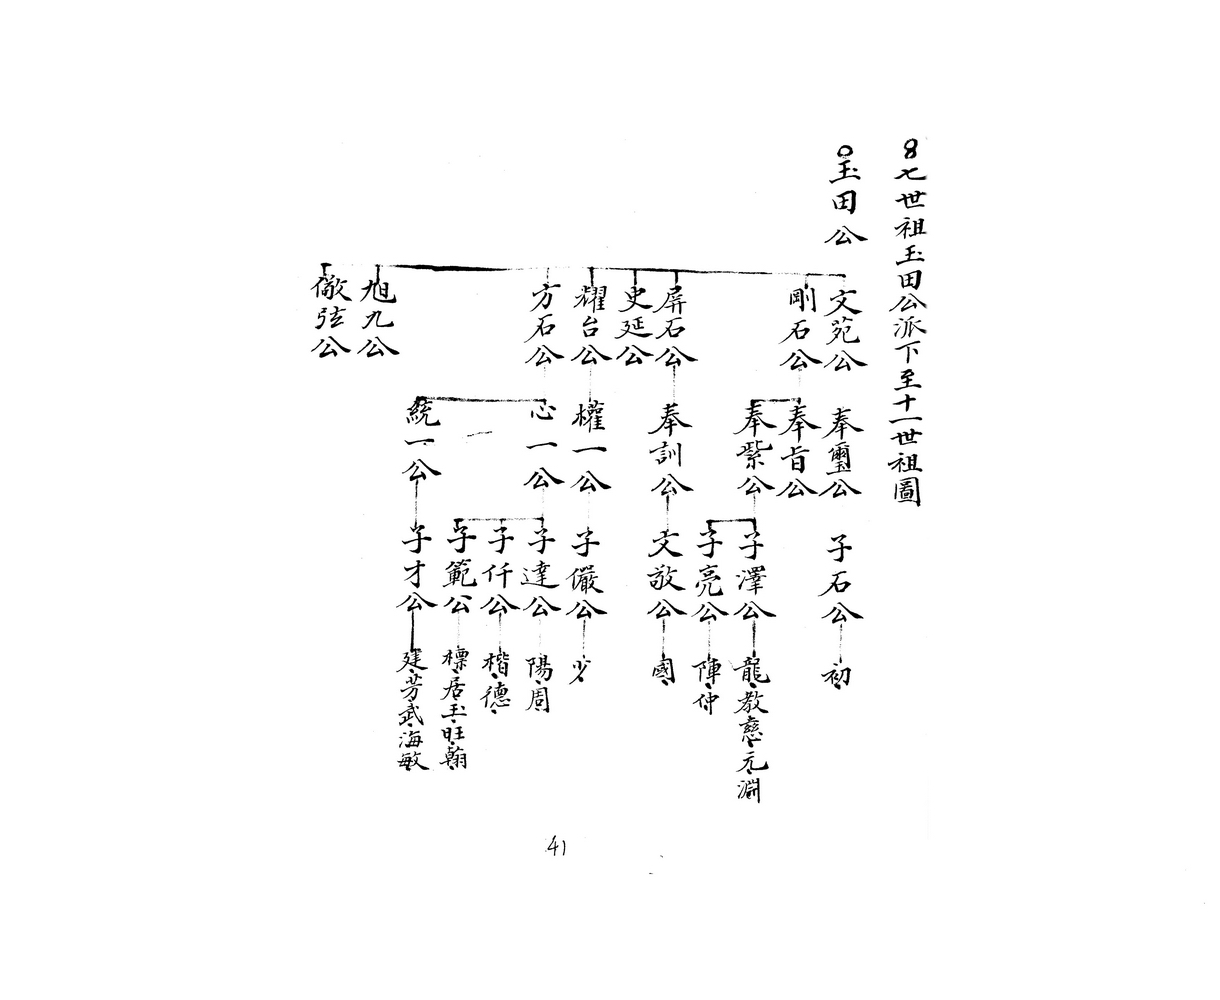 8七世祖玉田公派下至十一世祖圖
○玉田公
文苑公
剛石公
屏石公
史延公
耀台公
方石公
旭九公
儆弦公
奉璽公
奉旨公
奉紫公
奉訓公
權一公
心一公
統一公
子石公
子澤公
子亮公
文敬公
子儼公
子達公
子仟公
子範公
子才公
初
龍、教、慈、元、淵
陣、仲
國
少
陽、周
楷、德
標、居、玉、旺、翰
建、芳、武、海、敏
41